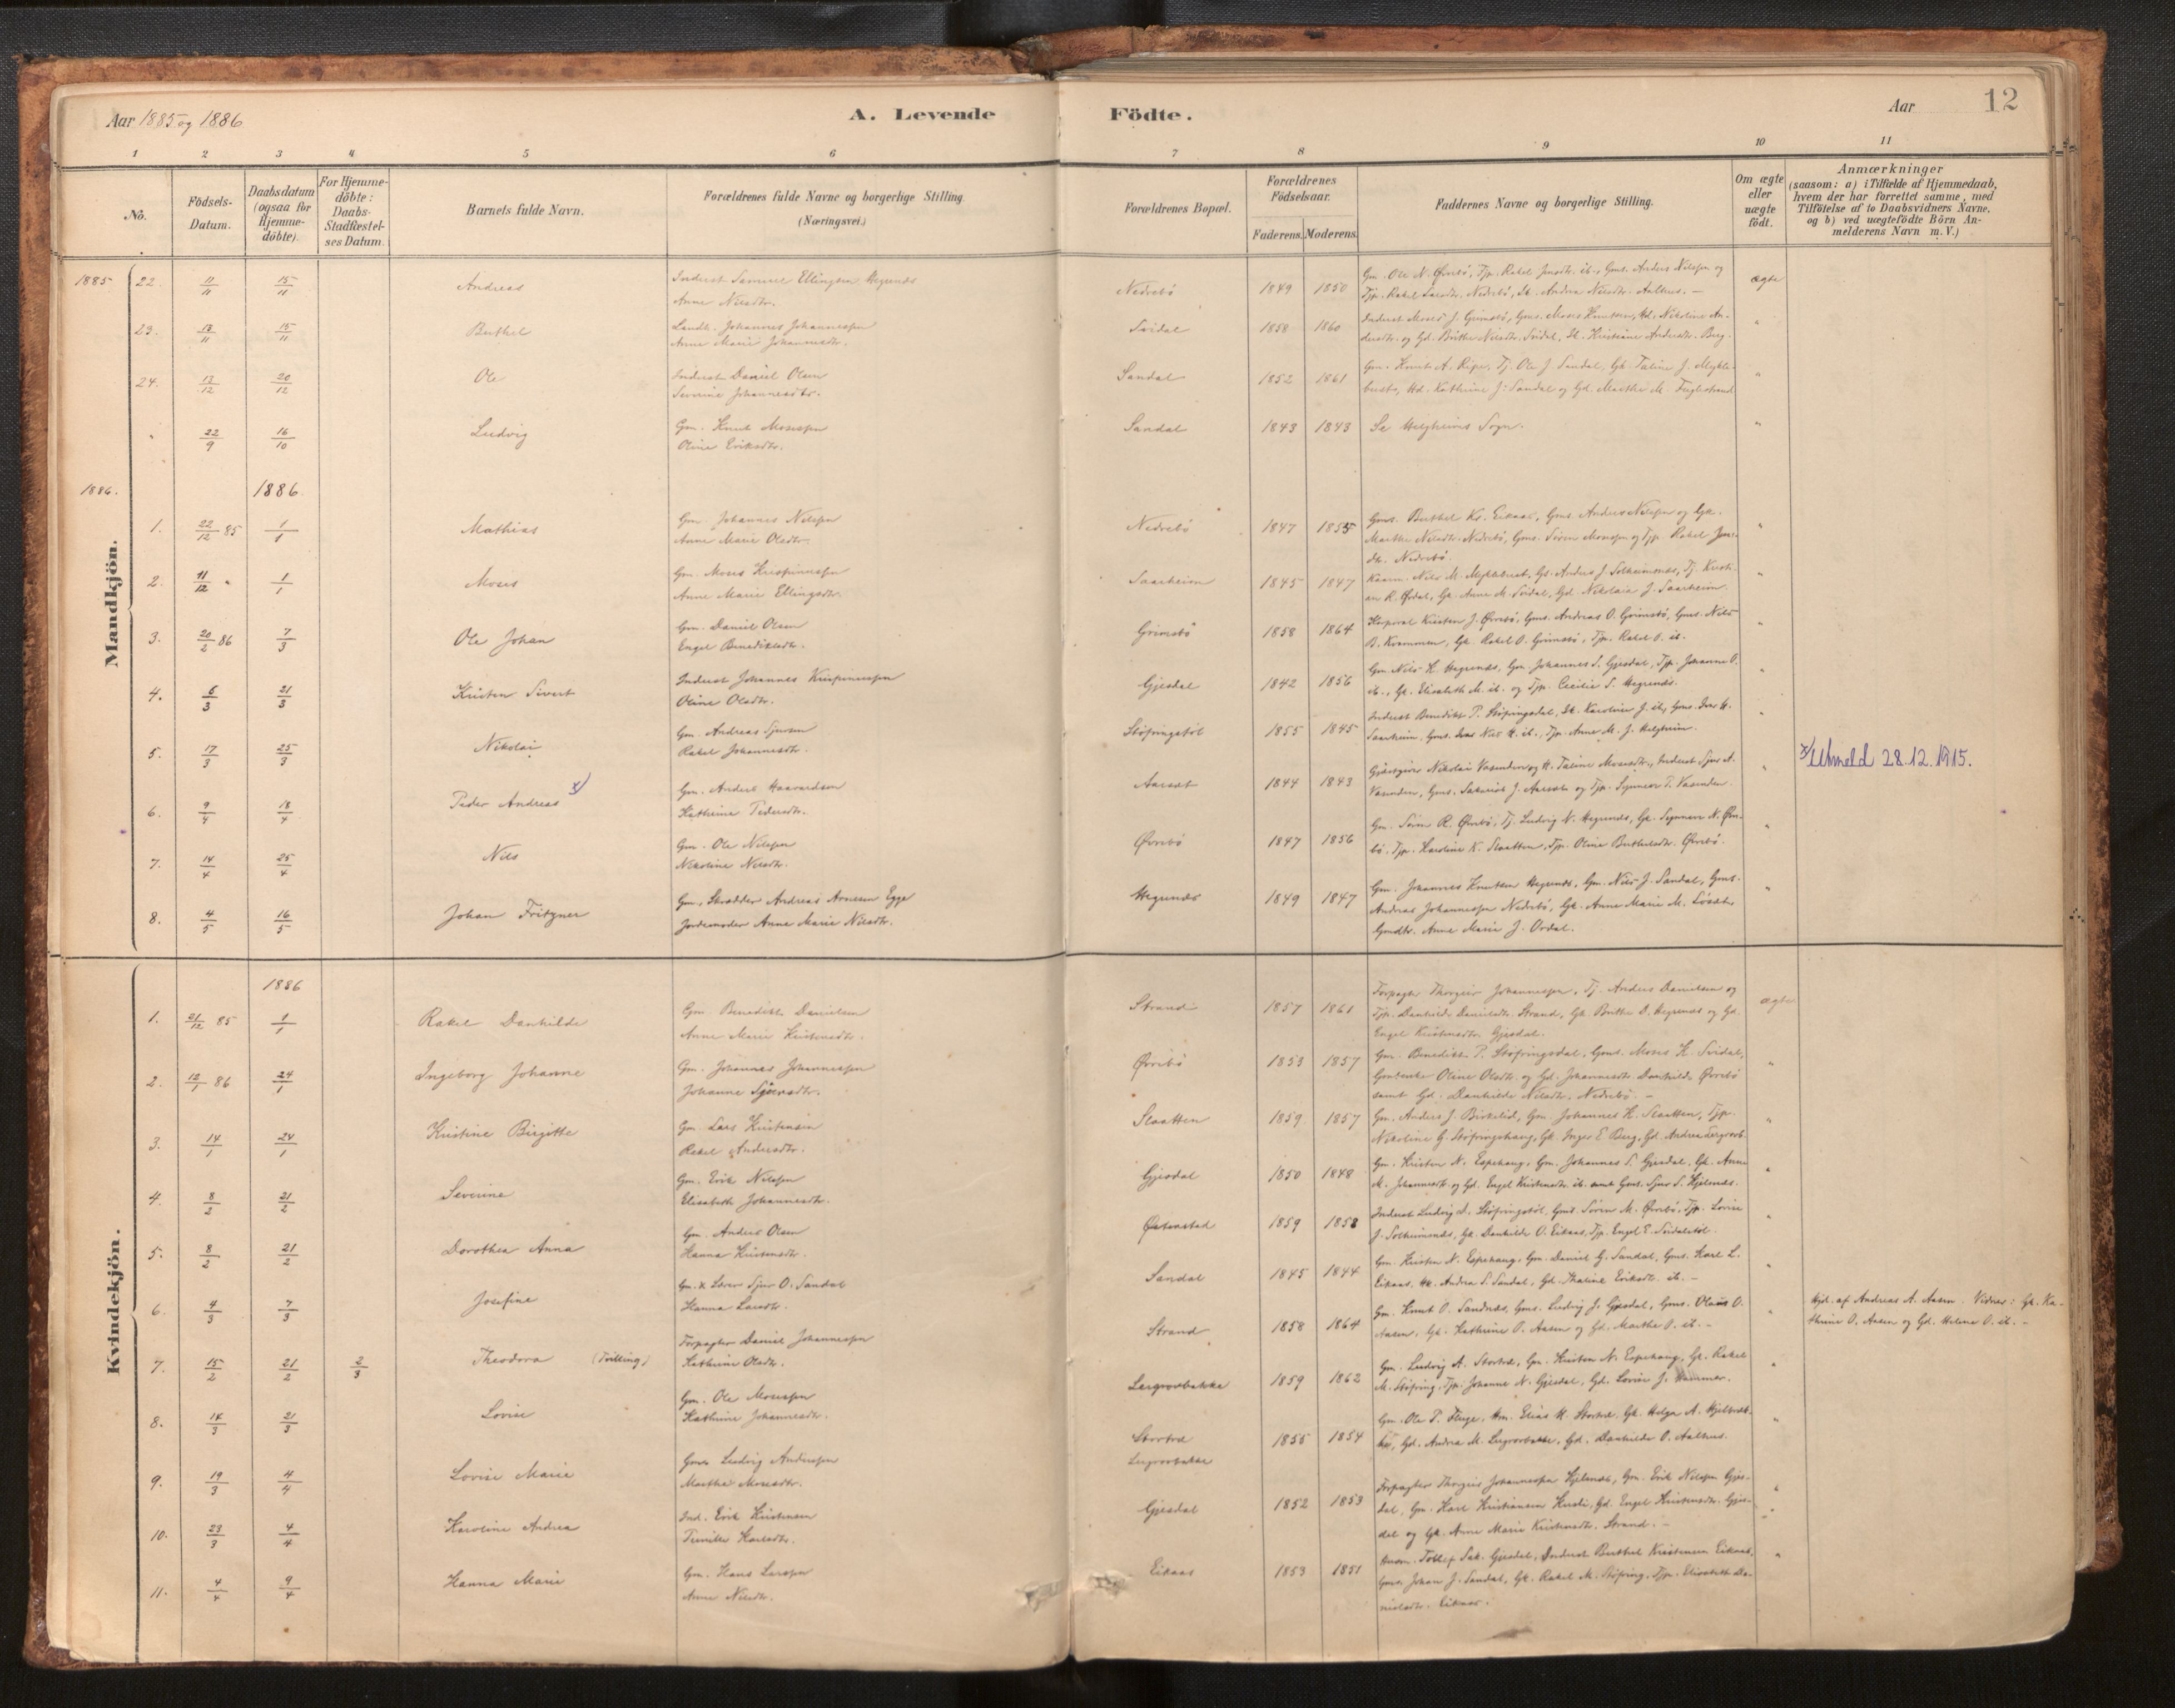 Aar 1885 og 1886
A. Levende
Födte.
Aar
12
1 2 3 4 5 6 7 8 9 10 11
No.
Födsels-
Datum.
Daabsdatum
(ogsaa for
Hjemme-
döbte)
For Hjemme-
döbte:
Daabs-
Stadfæstel-
ses Datum.
Barnets fulde Navn.
Forældrenes fulde Navne og borgerlige Stilling
(Næringsvei.)
Forældrenes Bopæl.
Forældrenes
Födselsaar.
Faderens. Moderens.
Faddernes Navne og borgerlige Stilling.
Om ægte
eller
uægte
födt.
Anmærkninger
(saasom: a) i Tilfælde af Hjemmedaab,
hvem der har forrettet samme, med
Tilföielse af to Daabsvidners Navne,
og b) ved uægtefödte Börn An-
melderens Navn m. V.)
Mandkjön.
1885 22 11/11 15/11 Andreas
Inderst Samuel Ellingsen Hegrenæs
Anne Nilsdtr.
Nedrebö 1849 1850
Gm. Ole N. Øvrebö, Tjp. Rakel ib., Gms. Anders Nilssen og
Tjp. Rakel Larsdtr. Nedrebö, Andrea Nilsdtr. Aalhus. –
ægte
23. 13/11 15/11 Berthel
Landh. Johannes Johannessen
Anne Marie Johannesdtr.
Svidal 1858 1860
Inderst Moses J. Grimsbö, Gms. Moses Knutsen, Nikoline An-
dersdtr. og Gd. Brithe Nilsdtr. Svidal, Kristiane Andersdtr. Berg.
"
24. 13/12 20/12 Ole
Inderst Daniel Olsen
Severine Johannesdtr.
Sandal 1852 1861
Gm. Knut A. Ripe, Tj. Ole J. Sandal, Gk. Taline J. Mykle-
bust, Kathrine J. Sandal og Gd. Marthe M. Fuglestrand
"
" 22/9 16/10 Ludvig
Gm. Knut Mosessen
Oline Eriksdtr.
Sandal 1843 1843 Se Helgheims Sogn.
"
1886. 1886
1. 22/12 85 1/1 Mathias
Gm. Johannes Nilssen
Anne Marie Olsdtr.
Nedrebö 1847 1855
Gms. Berthel Kr. Eikaas, Gms. Anders Nilssen og Gk.
Marthe Nilsdtr. Nedrebö, Gms. Sören Monssen og Tjp. Rakel Jens-
dtr. Nedrebö.
"
2. 11/12 " 1/1 Moses
Gm. Moses Krispinnessen
Anne Marie Ellingsdtr.
Saarheim 1845 1847
Nils M. Myklebust, Gd. Anders J. Solheimsnæs, Tj. Kristi-
an R. Årdal, Gk. Anne M. Svidal, Gd. Nikolaia J. Saarheim.
"
3. 20/2 86 7/3 Ole Johan
Gm. Daniel Olsen
Engel Benediktsdtr.
Grimsbö 1858 1864
Korporal Kristen J. Øvrebö, Gms. Andreas O. Grimsbö, Gms. Nils
B. Kvammen, Gk. Rakel O. Grimsbö, Tjp. Rakel O. ib.
"
4. 6/3 21/3 Kristen Sivert
Inderst Johannes Krispinnessen
Oline Olsdtr.
Gjesdal 1842 1856
Gm. Nils K. Hegrenæs, Gm. Johannes S. Gjesdal, Tjp. Johanne O.
ib., Gk. Elisabeth M. ib. og Tjp. Cecilie S. Hegrenæs.
"
5. 17/3 25/3 Nikolai
Gm. Andreas Sjursen
Rakel Johannesdtr.
Stöfringstöl 1855 1845
Inderst Benedikt P. Stöfringsdal, Karoline J. ib., Gms. Ivar H.
Saarheim, Gms. Nils H. ib., Tjp. Anne M. J. Helgheim.
"
6. 9/4 18/4 Peder Andreas x)
Gm. Anders Haavardsen
Kathrine Pedersdtr.
Aarsæt 1844 1843
Nikolai Vasenden og H. Taline Mosesdtr., Inderst Sjur A.
Vasenden, Gms. Zakarias J. Aarsæt og Tjp. Synneva P. Vasenden.
"
x) Utmeld 28.12.1915.
7. 14/4 25/4 Nils
Gm. Ole Nilssen
Nikoline Nilsdtr.
Øvrebö 1847 1856
Gm. Sören R. Øvrebö, Tj. Ludvig N. Hegrenæs, Gk. Synneva N. Øvre-
bö, Tjp. Karoline K. Slaatten, Tjp. Oline Berthelsdtr. Øvrebö.
"
8. 4/5 16/5 Johan Fritzner
Gm., Skrædder Andreas Arnesen Egge
Jordemoder Anne Marie Nilsdtr.
Hegrenæs 1849 1847
Gm. Johannes Knutsen Hegrenæs, Gm. Nils J. Sandal, Gms.
Andreas Johannessen Nedrebö, Gk. Anne Marie M.
Anne Marie J. Årdal.
"
Kvindekjön.
1886
1. 21/12 85 1/1 Rakel Danhilde
Gm. Benedikt Danielsen
Anne Marie Kristensdtr.
Strand 1857 1861
Forpagter Thorgeir Johannessen, Tj. Anders Danielsen og
Tjp. Danhilde Danielsdtr. Strand, Gk. Brithe D. Hegrenæs og Gd.
Engel Kristensdtr. Gjesdal.
ægte
2. 12/1 86 24/1 Ingeborg Johanne
Gm. Johannes Johannessen
Johanne Sjursdtr.
Øvrebö 1853 1857
Gm. Benedikt P. Stöfringsdal, Gms. Moses K. Svidal,
Oline Olsdtr. og Gd. Johannesdtr. Danhilde Øvrebö
samt Gd. Danhilde Nilsdtr. Nedrebö. –
"
3. 14/1 24/1 Kristine Birgitte
Gm. Lars Kristensen
Rakel Andersdtr.
Slaatten 1859 1857
Gm. Anders J. Birkelid, Gm. Johannes K. Slaatten, Tjp.
Nikoline G. Stöfringshaug, Gk. Inger E. Berg, Gd. Andrea
"
4. 8/2 21/2 Severine
Gm. Erik Nilssen
Elisabeth Johannesdtr.
Gjesdal 1850 1848
Gm. Kristen N. Espehaug, Gm. Johannes S. Gjesdal, Gk. Anne
M. Johannesdtr. og Gd. Engel Kristensdtr. ib. samt Gms. Sjur S. Hjelmæs.
"
5. 8/2 21/2 Dorothea Anna
Gm. Anders Olsen
Hanna Kristensdtr.
Østenstad 1859 1858
Inderst Ludvig D. Stöfringstöl, Gms. Sören M. Øvrebö, Tjp. Lovise
J. Solheimsnæs, Gk. Danhilde O. Eikaas, Tjp. Engel E. Svidalstöl.
"
6. 4/3 7/3 Josefine
Gm. & Lærer Sjur O. Sandal
Hanna Larsdtr.
Sandal 1845 1844
Gm. Kristen N. Espehaug, Gm. Daniel G. Sandal, Gms. Karl L.
Eikaas, Andrea S. Sandal, Gd. Thaline Eriksdtr. ib. –
"
7. 15/2 21/2 2/3 Theodora (Tvilling)
Forpagter Daniel Johannessen
Kathrine Olsdtr.
Strand 1858 1864
Gm. Knut O. Sandnæs, Gms. Ludvig J. Gjesdal, Gms. Olaus O.
Aasen, Gk. Kathrine O. Aasen og Gd. Marthe O. ib. –
"
Hjd. af Andreas A. Aasen. Vidner: Gk. Ka-
thrine O. Aasen og Gd. Helene O. ib. –
8. 14/3 21/3 Lovise
Gm. Ole Mosessen
Kathrine Johannesdtr.
Lergrovbakke 1859 1862
Gm. Ludvig A. Stortræ, Gm. Kristen N. Espehaug, Gk. Rakel
M. Stöfring, Tjp. Johanne N. Gjesdal, Gd. Lovise J. Hammer.
"
9. 19/3 4/4 Lovise Marie
Gms. Ludvig Anderssen
Marthe Mosesdtr.
Stortræ
Lergrovbakke
1855 1854
Gm. Ole P. Fluge, Elias M. Stortræ, Gk. Helga A.
Gd. Andrea M. Lergrovbakke, Gd. Danhilde O. Aalhus.
"
10. 23/3 4/4 Karoline Andrea
Ind. Erik Kristensen
Pernille Karlsdtr.
Gjesdal 1852 1853
Forpagter Thorgeir Johannessen Hjelmæs, Gm. Erik Nilssen Gjes-
dal, Gm. Karl Kristiansen Gd. Engel Kristensdtr. Gjes-
dal og Gk. Anne Marie Kristensdtr. Strand. –
"
11. 4/4 9/4 Hanna Marie
Gm. Hans Larssen
Anne Nilsdtr.
Eikaas 1853 1851
Gjesdal, Inderst Berthel Kristensen Eikaas,
Gms. Johan J. Sandal, Gk. Rakel M. Stöfring, Tjp. Elisabeth Da-
nielsdtr. Eikaas.
"